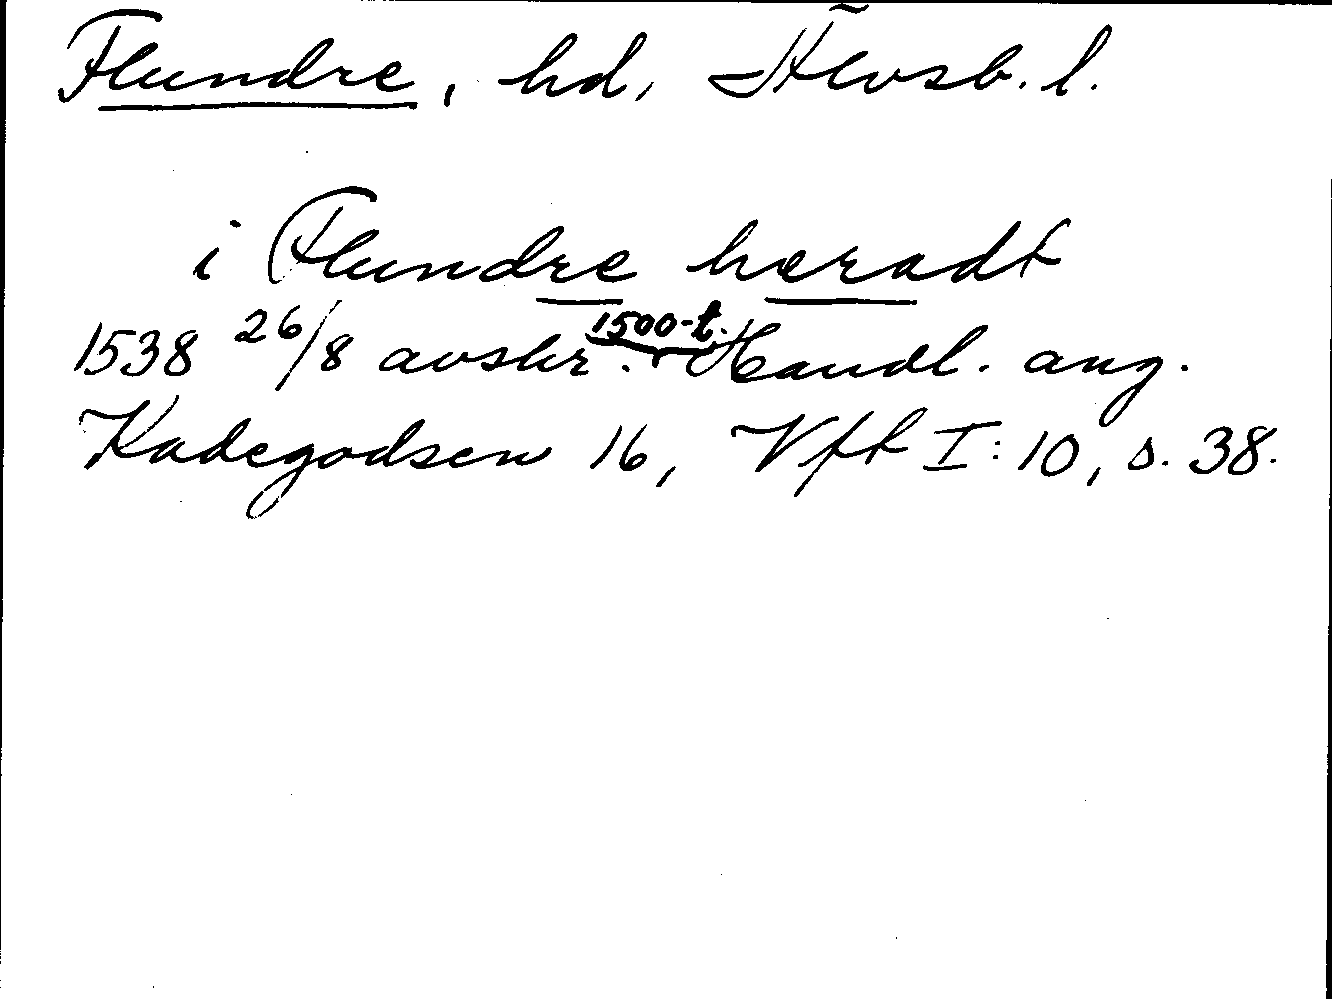 Flundre, hd, Älvsb. l.
i Flundre heradt
1538 26/8 avskr. 1500-t. Handl. ang.
Kadegodsen 16, Vft I:10, s. 38.